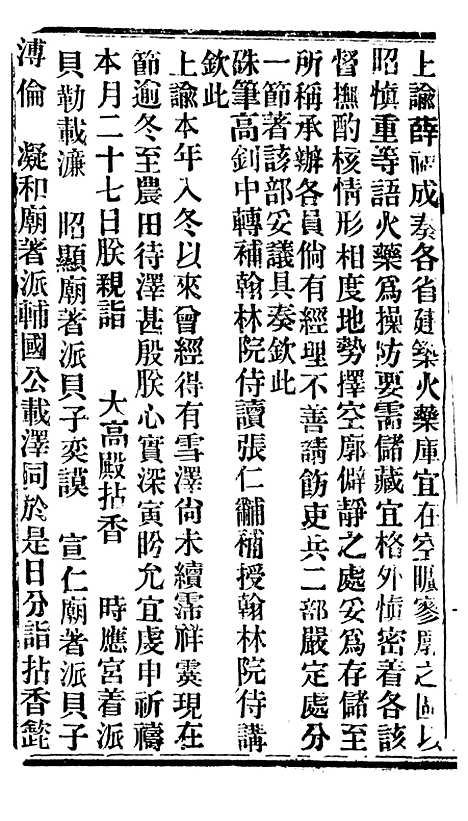 上諭薛福成奏各省建築火藥庫宜在空曠寥廓之區以
昭慎重等語火藥爲操防要需儲藏宜格外慎密着各該
督撫酌核情形相度地勢擇空廓僻靜之處妥爲存儲至
所稱承辦各員倘有經理不善請飭吏兵二部嚴定處分
一節著該部妥議具奏欽此
硃筆高釗中轉補翰林院侍讀張仁黼補授翰林院侍講
欽此
上諭本年入冬以來曾經得有雪澤尚未續霈祥霙現在
節逾冬至農田待澤甚殷朕心實深寅盼允宜虔申祈禱
本月二十七日朕親詣 大高殿拈香 時應宮着派
貝勒載濂 昭顯廟著派貝子奕謨 宣仁廟著派貝子
溥倫 凝和廟著派輔國公載澤同於是日分詣拈香毙